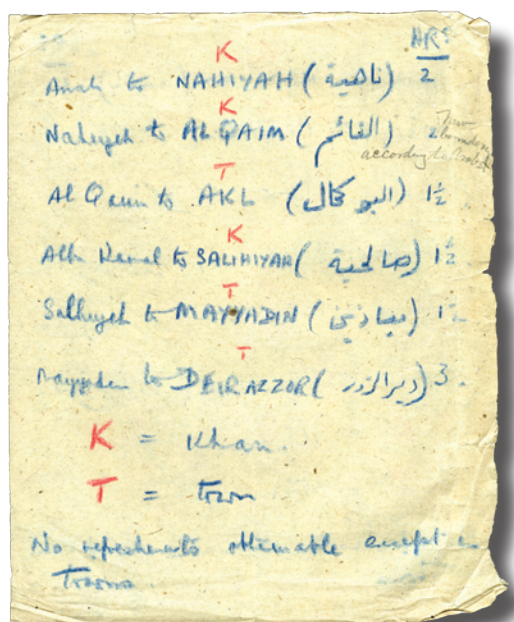 HRS
K
Anah to NAHIYAH (ناهية) 2
K
Nahiyeh to AL QAIM (القائم) 2
according to
T
Al Qaim to AKL (البو كمال) 1½
K
Albu Kamal to SALIHIYAH (صالحية) 1½
T
Salhiyeh to MAYYADIN (ميادين) 1½
T
Mayyadin to DEIR AZZOR (ديرالزور) 3.
K = Khan.
T = Town
No refreshments obtainable except in
Towns.